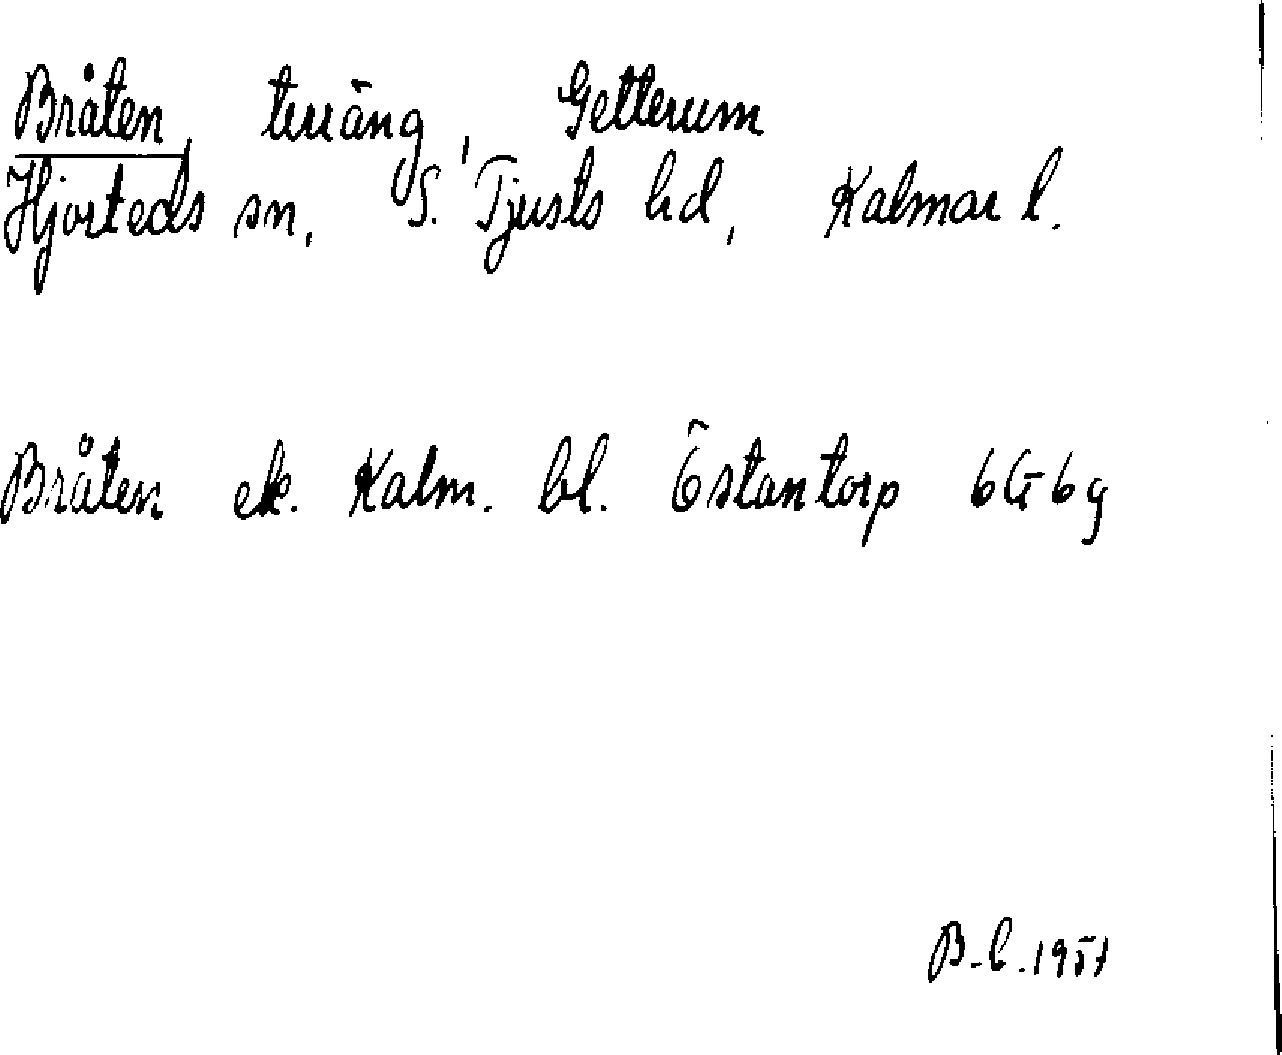 Bråten, terräng, Getterum
Hjorteds sn, S. Tjusts hd, Kalmar l.
Bråten ek. Kalm. bl. Östantorp 6G6g
B-l. 1957